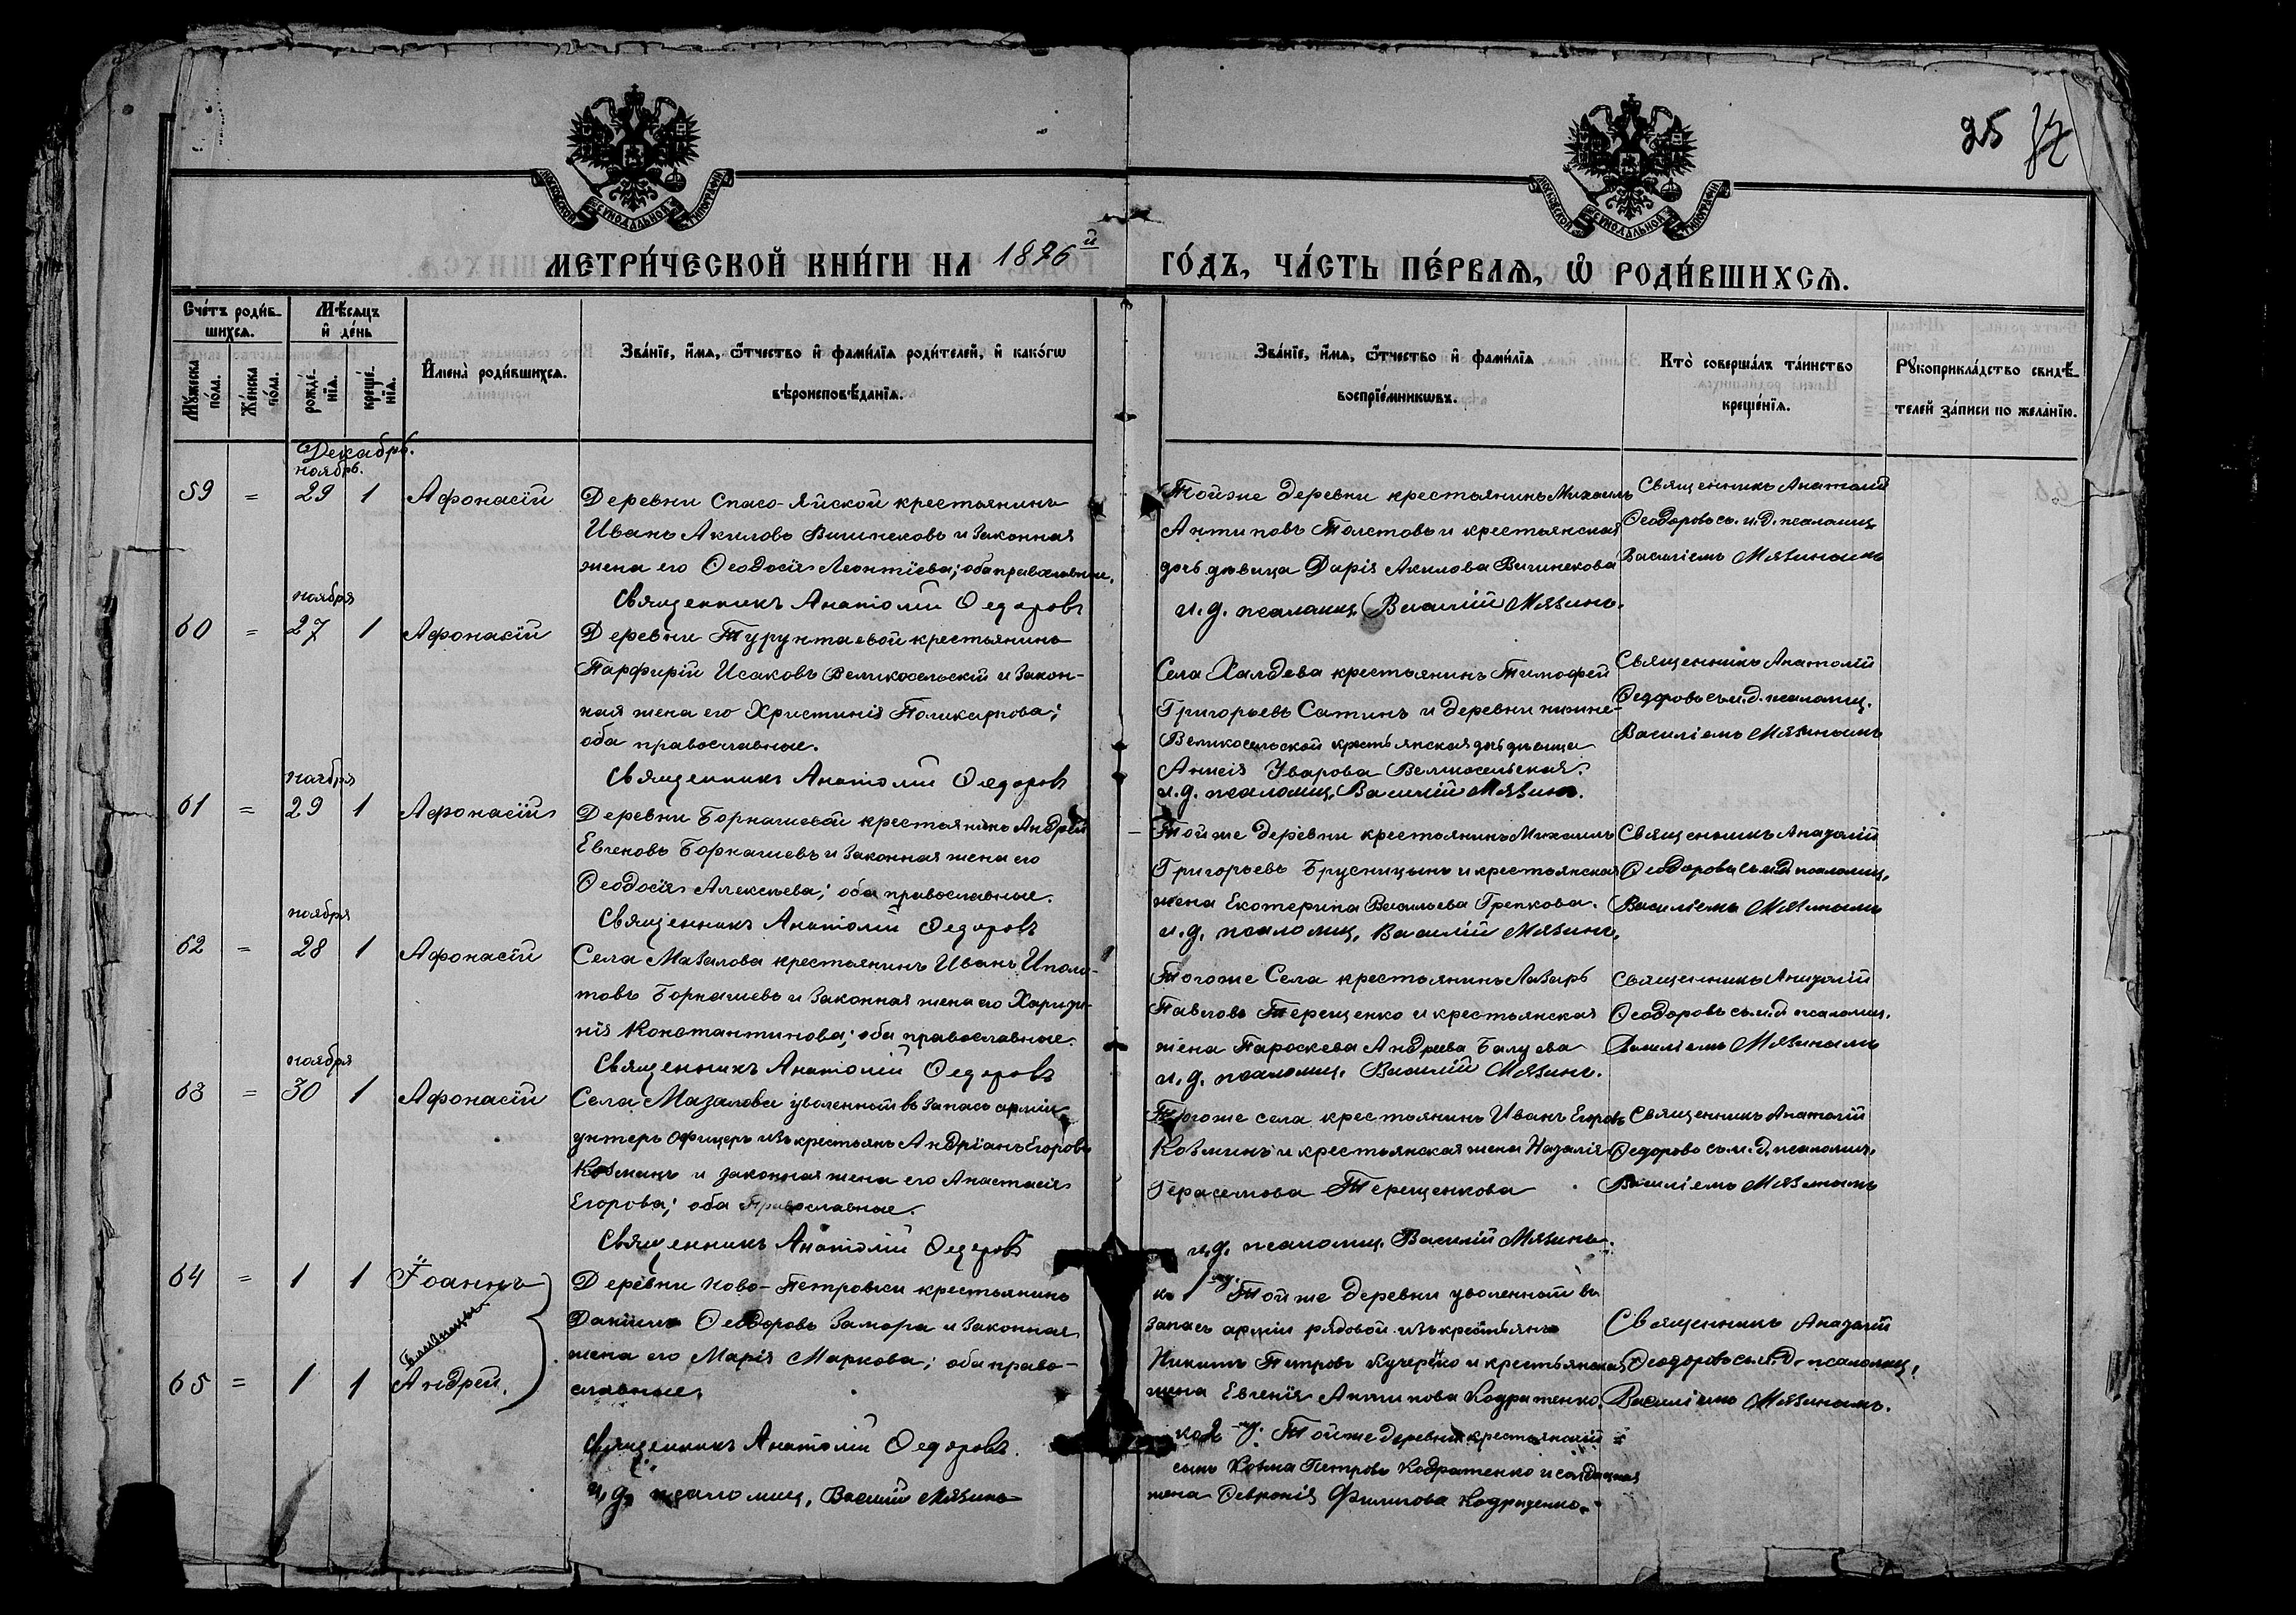 25
МОСКОВСКОЙ СѴНОДАЛЬНОЙ ТИПОГРАФІИ
МОСКОВСКОЙ СѴНОДАЛЬНОЙ ТИПОГРАФІИ
МЕТРИ́ЧЕСКОЙ КНИ́ГИ НА 1896й ГО́ДЪ, ЧА́СТЬ ПЕ́РВАѦ, Ѽ РОДИ́ВШИХСѦ.
Сче́тъ роди́в-
шихсѧ.
Мѣ́сѧцъ
и҆ де́нь
Мꙋ́жеска по́ла.
Же́нска по́ла.
рожде́-нїѧ.
креще́-нїѧ.
И҆мена̀ роди́вшихсѧ.
Зва́нїе, и҆́мѧ, ѻ҆́тчество и҆ фами́лїѧ роди́телей, и҆ како́гѡ
вѣроисповѣ́данїѧ.
Зва́нїе, и҆́мѧ, ѻ҆́тчество и҆ фами́лїѧ
воспрїе́мникѡвъ.
Кто̀ соверша́лъ та́инство
креще́нїѧ.
Рꙋкоприкла́дство свидѣ́-
телей за́писи по жела́нїю.
Декабрь.
ноябрь.
59 = 29 1 Афонасій
Деревни Спасо-Яйской крестьянинъ
Иванъ Акиловъ Вишнековъ и законная
жена его Ѳеодосія Леонтіева; оба православные.
Священникъ Анатолій Ѳедоровъ
Тойже деревни крестьянинъ Михаилъ
Антиповъ Толстовъ и крестьянская
дочь дѣвица Дарія Акилова Вишнекова
и.д. псаломщ. Василій Мязинъ.
Священникъ Анатолій
Ѳеодоровъ съ и.д. псаломщ.
Василіемъ Мязинымъ
ноября
60 = 27 1 Афонасій
Деревни Турунтаевой крестьянинъ
Парфирій Исаковъ Великосельскій и закон-
ная жена его Христинія Поликарпова;
оба православные.
Священникъ Анатолій Ѳедоровъ
Села Халдева крестьянинъ Тимофей
Григорьевъ Сатинъ и деревни
Великосельской крестьянская дочь дѣвица
Анисія Уварова Великосельская.
и.д. псаломщ. Василій Мязинъ.
Священникъ Анатолій
Ѳедоровъ съ и.д. псаломщ.
Василіемъ Мязинымъ
ноября
61 = 29 1 Афонасій
Деревни Борнашевой крестьянинъ Андрей
Евгеновъ Борнашевъ и законная жена его
Ѳеодосія Алексѣева; оба православные.
Священникъ Анатолій Ѳедоровъ
Тойже деревни крестьянинъ Михаилъ
Григорьевъ Брусницынъ и крестьянская
жена Екотерина Васильева Грепкова.
и.д. псаломщ. Василій Мязинъ.
Священникъ Анатолій
Ѳеодоровъ съ и.д. псаломщ.
Василіемъ Мязинымъ
ноября
62 = 28 1 Афонасій
Села Мазалова крестьянинъ Иванъ Иполи-
товъ Борнашевъ и законная жена его Харити-
нія Константинова; оба православные.
Священникъ Анатолій Ѳедоровъ
Тогоже Села крестьянинъ Лазарь
Павловъ Терещенко и крестьянская
жена Пароскева Андреева Балуева
и.д. псаломщ. Василій Мязинъ.
Священникъ Анатолій
Ѳеодоровъ съ и.д. псаломщ.
Василіемъ Мязинымъ
ноября
63 = 30 1 Афонасій
Села Мазалова уволенный въ запасъ арміи
унтеръ офицеръ изъ крестьянъ Андріанъ Егоровъ
Козминъ и законная жена его Анастасія
Егорова; оба Православные.
Священникъ Анатолій Ѳедоровъ
Тогоже села крестьянинъ Иванъ Егоровъ
Козминъ и крестьянская жена Наталія
Герасемова Терещенкова
и.д. псаломщ. Василій Мязинъ.
Священникъ Анатолій
Ѳедоровъ съ и.д. псаломщ.
Василіемъ Мязинымъ
64 = 1 1 Іоаннъ
Близнецы
65 = 1 1 Андрей.
Деревни Ново-Петровки крестьянинъ
Даніилъ Ѳеодоровъ Замора и законная
жена его Марія Маркова; оба право-
славные.
Священникъ Анатолій Ѳедоровъ.
и.д. псаломщ. Василій Мязинъ
къ 1-му. Тойже деревни уволенный въ
запасъ арміи рядовой изъ крестьянъ
Никита Петровъ Кучеренко и крестьянская
жена Евгенія Антипова Кодратенко.
ко 2-му. Тойже деревни крестьянскій
сынъ Козма Петровъ Кодратенко и солдатская
жена Ѳевронія Филипова Кодратенко.
Священникъ Анатолій
Ѳеодоровъ съ и.д. псаломщ.
Василіемъ Мязинымъ.